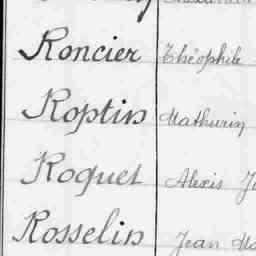 Roncier Théophile
Roptin Mathurin
Roquet Alexis
Rosselin Jean